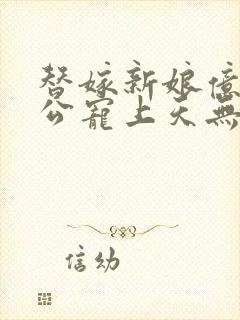 替嫁新娘億
公寵上天無
信幼